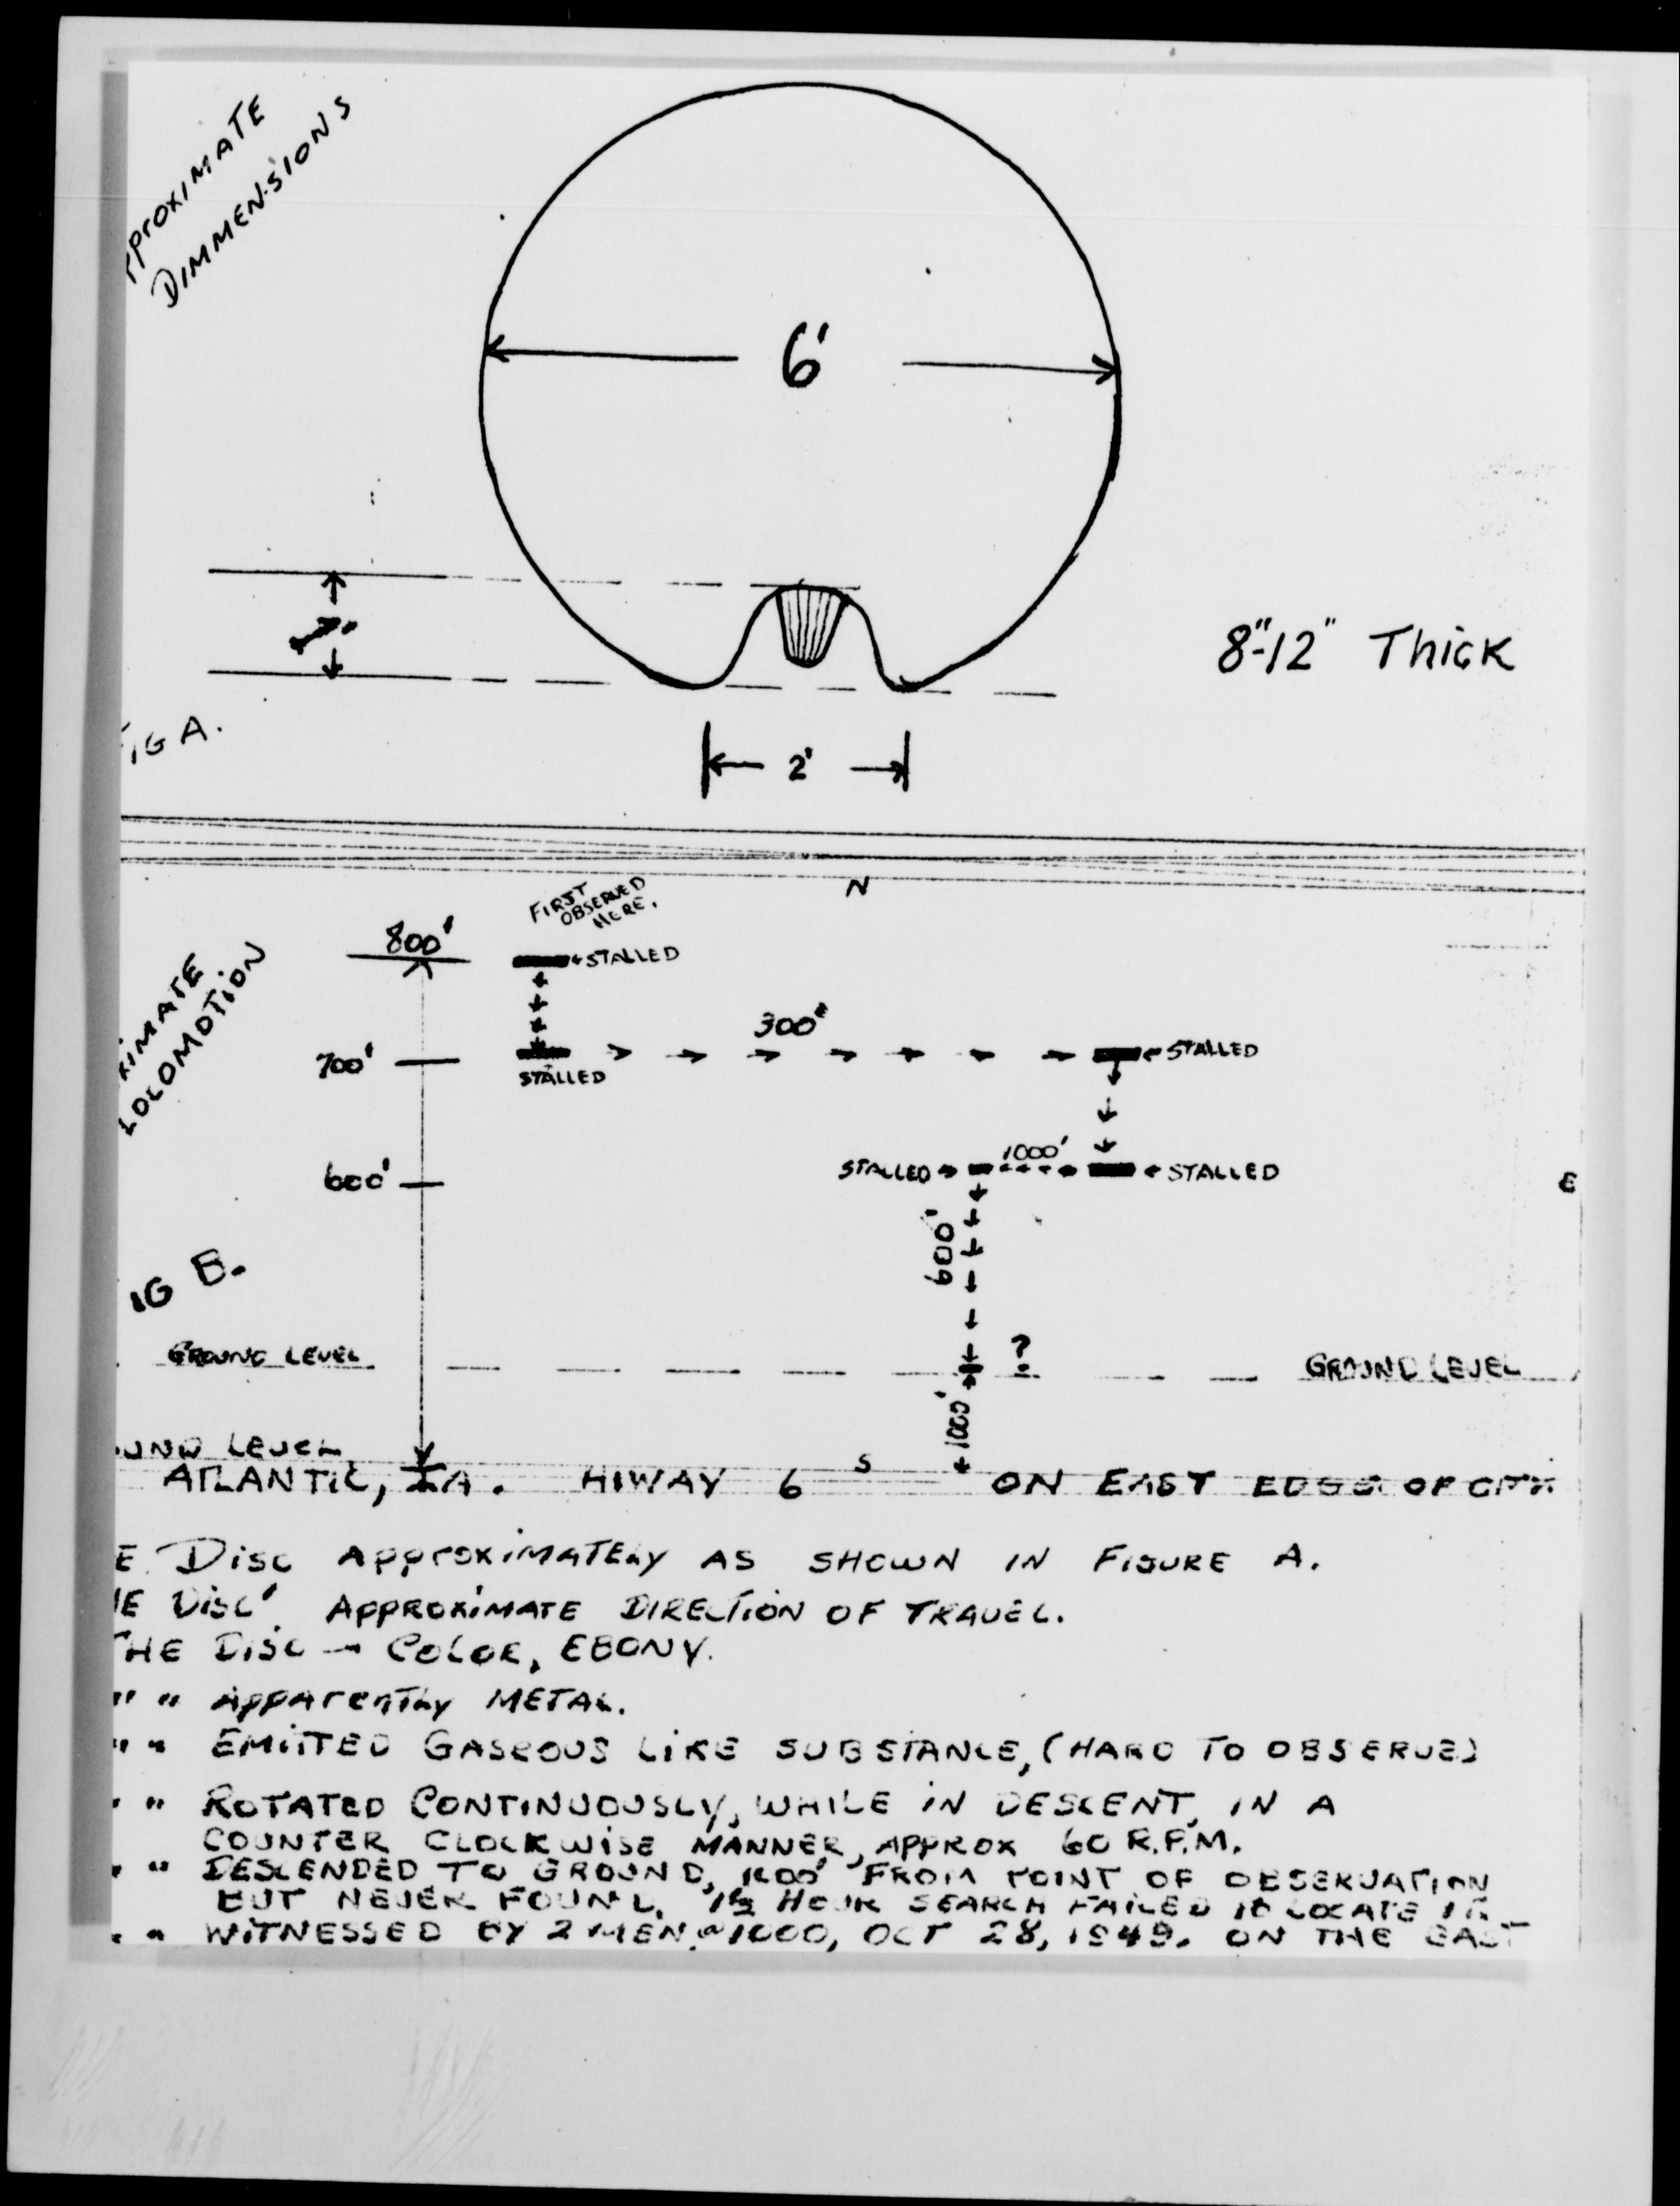 PPROXIMATE
DIMMENSIONS
6'
1'
8"-12" Thick
FIG A.
2'
N
FIRST
OBSERVED
HERE.
800'
←STALLED
XIMATE
LOCOMOTION
300'
700'
STALLED
←STALLED
1000'
600'
STALLED→
←STALLED
E
600'
IG B.
?
GROUND LEVEL
GROUND LEVEL
1000'
UND LEVEL
S
ATLANTIC, IA. HIWAY 6 ON EAST EDGE OF CITY
E DISC APPROXIMATELY AS SHOWN IN FIGURE A.
HE DISC' APPROXIMATE DIRECTION OF TRAVEL.
THE DISC — COLOR, EBONY.
" " APPARENTLY METAL.
" " EMITTED GASEOUS LIKE SUBSTANCE, (HARD TO OBSERVE)
" " ROTATED CONTINUOUSLY, WHILE IN DESCENT, IN A
COUNTER CLOCKWISE MANNER, APPROX 60 R.P.M.
" " DESCENDED TO GROUND, 1000' FROM POINT OF OBSERVATION
BUT NEVER FOUND. 1½ HOUR SEARCH FAILED TO LOCATE IT
" " WITNESSED BY 2 MEN @ 1000, OCT 28, 1949. ON THE EAST